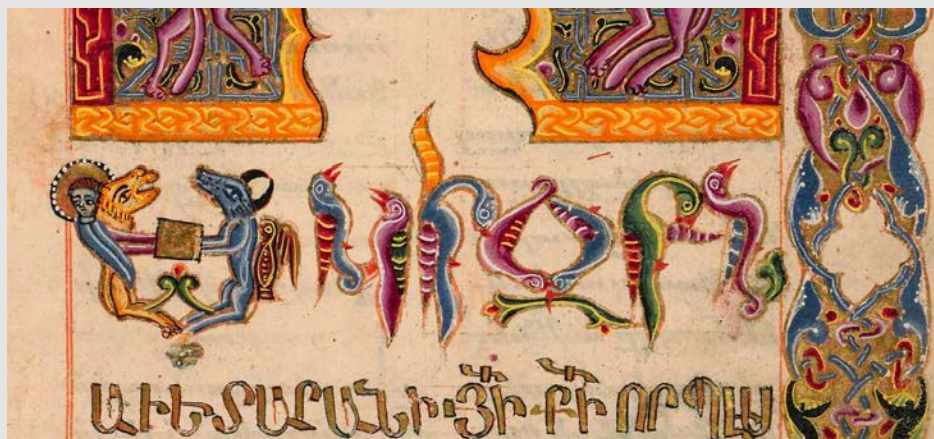 Սկիզբն
ԱՒԵՏԱՐԱՆԻ · ՅԻ · ՔԻ ՈՐՊԷՍ